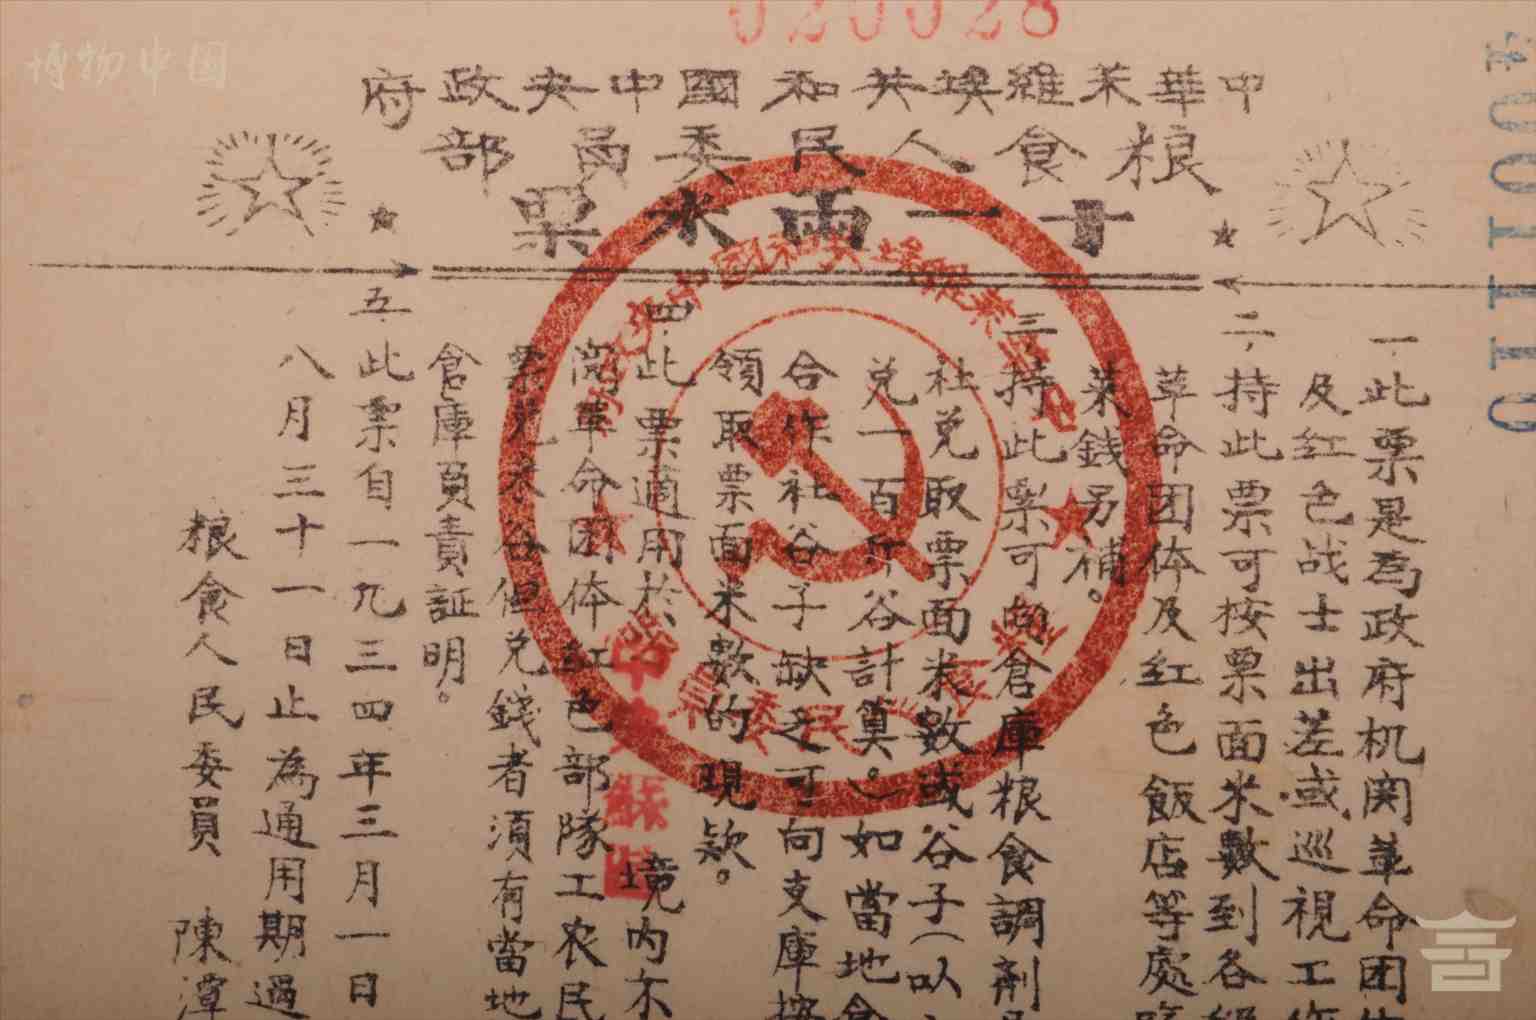 博物中国
020028
府政央中國和共埃維萊華中
部員委民人食粮
票米兩一十
一.此票是為政府机関革命团体
及红色战士出差或巡視工作
二.持此票可按票面米数到各級
革命团体及红色飯店等處
萊錢另補。
三.持此票可向倉庫粮食調剂
社兑取票面米數或谷子(以
兑一百斤谷計算。)如當地倉
合作社谷子缺乏可向支庫按
領取票面米數的現款。
四.此票適用於 境内不
関革命团体红色部隊工农民
票兑米谷但兑錢者須有當地
倉庫員責証明。
五.此票自一九三四年三月一日
八月三十一日止為通用期過
粮食人民委員 陳潭
中央蘇區
4001110